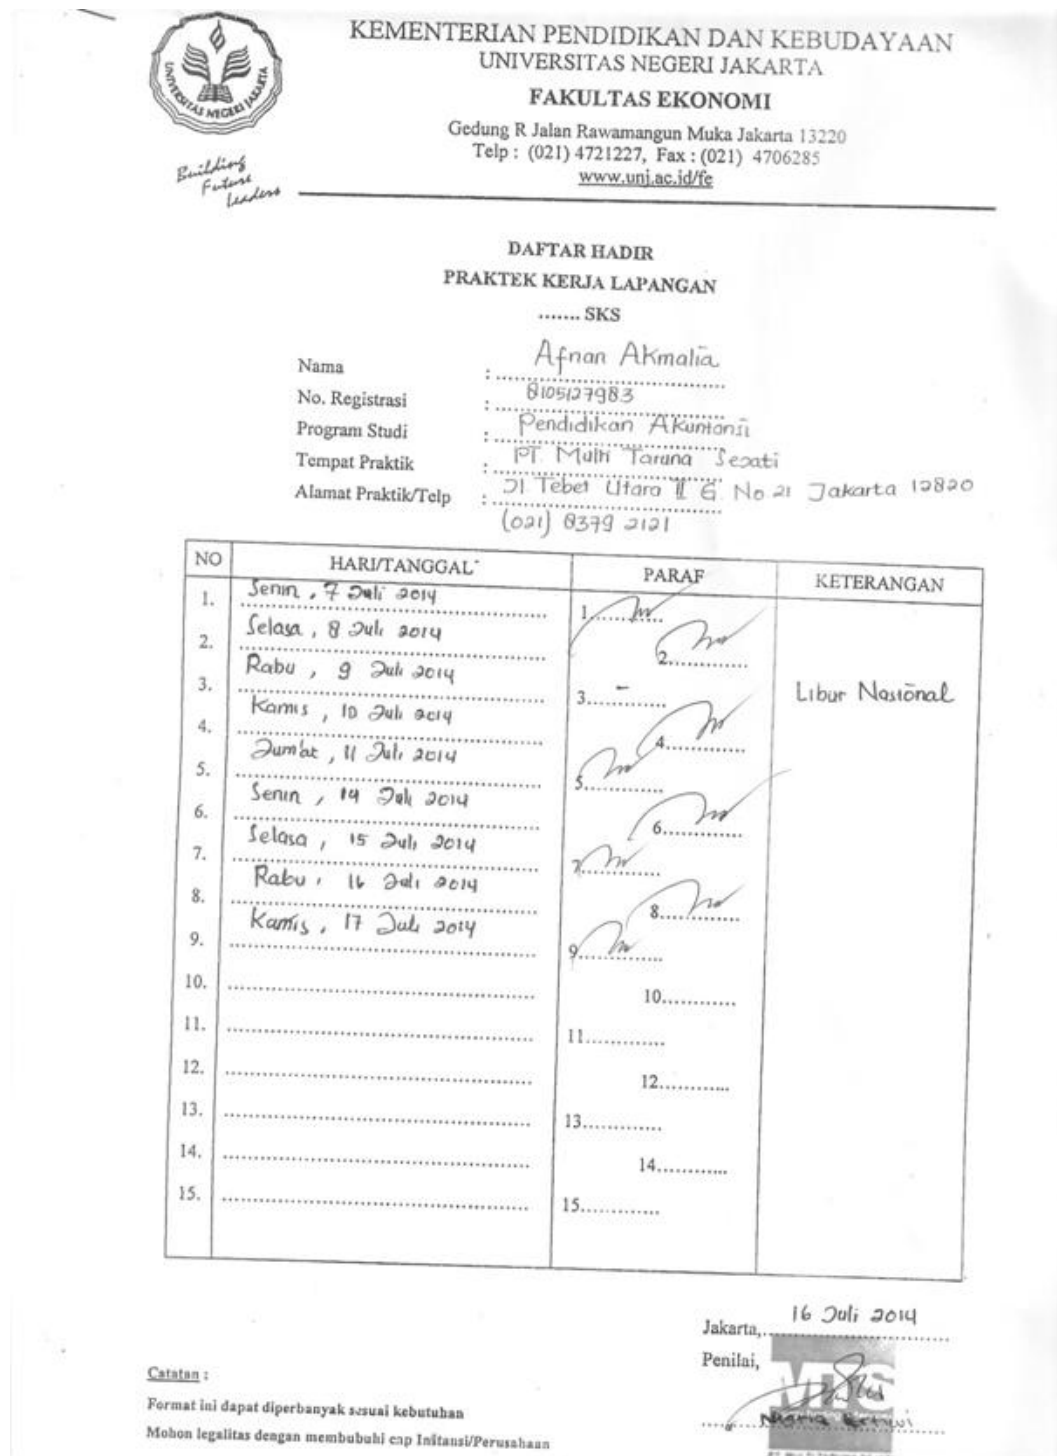 KEMENTERIAN PENDIDIKAN DAN KEBUDAYAAN
UNIVERSITAS NEGERI JAKARTA
FAKULTAS EKONOMI
Gedung R Jalan Rawamangun Muka Jakarta 13220
Telp : (021) 4721227, Fax : (021) 4706285
www.unj.ac.id/fe
UNIVERSITAS NEGERI JAKARTA
Building
Future
Leaders
DAFTAR HADIR
PRAKTEK KERJA LAPANGAN
....... SKS
Nama : Afnan Akmalia
No. Registrasi : 8105127983
Program Studi : Pendidikan Akuntansi
Tempat Praktik : PT. Multi Taruna Sejati
Alamat Praktik/Telp : Jl. Tebet Utara II G No 21 Jakarta 12820
(021) 8379 2121
NO HARI/TANGGAL PARAF KETERANGAN
1. Senin, 7 Juli 2014 1.
2. Selasa, 8 Juli 2014 2.
3. Rabu, 9 Juli 2014 3. - Libur Nasional
4. Kamis, 10 Juli 2014 4.
5. Jum'at, 11 Juli 2014 5.
6. Senin, 14 Juli 2014 6.
7. Selasa, 15 Juli 2014 7.
8. Rabu, 16 Juli 2014 8.
9. Kamis, 17 Juli 2014 9.
10. 10.
11. 11.
12. 12.
13. 13.
14. 14.
15. 15.
Jakarta, 16 Juli 2014
Penilai,
MTS
Catatan :
Format ini dapat diperbanyak sesuai kebutuhan
Mohon legalitas dengan membubuhi cap Initansi/Perusahaan